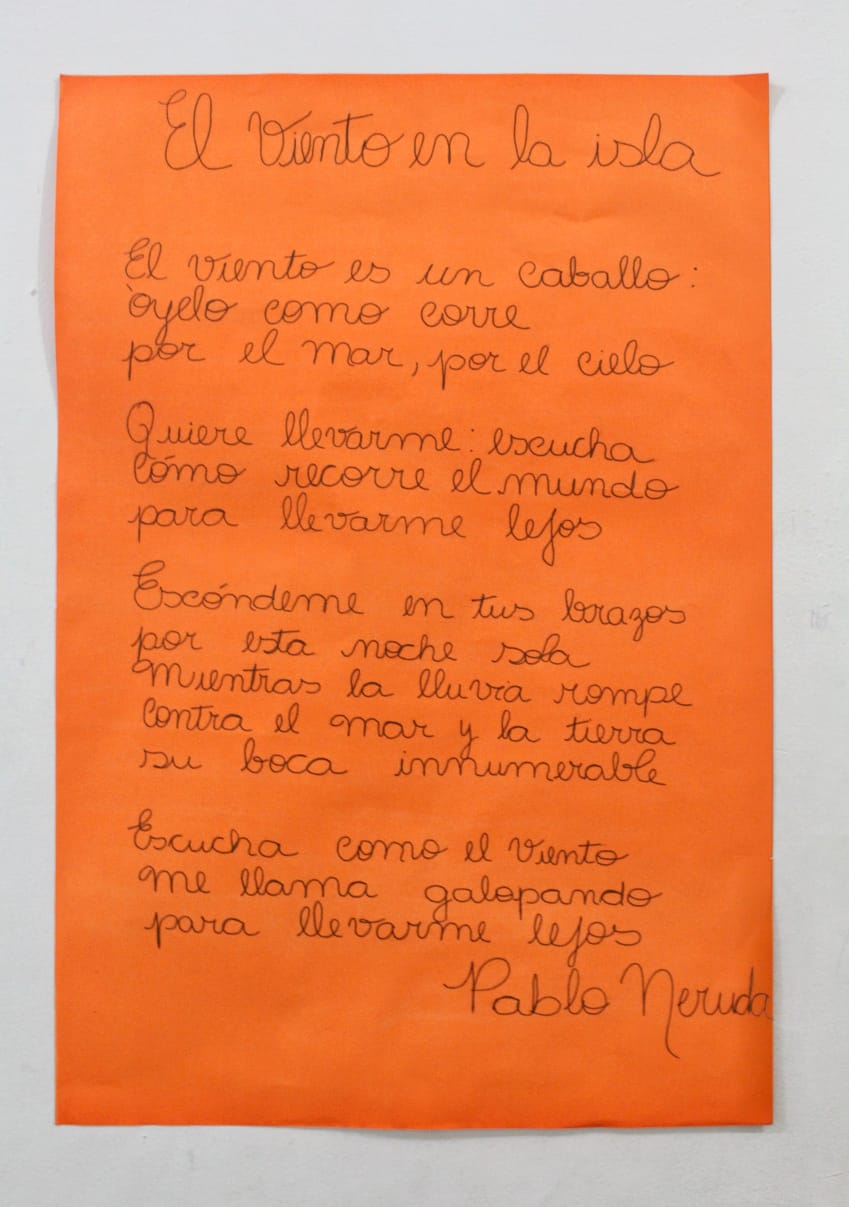 El Viento en la isla
El viento es un caballo:
òyelo como corre
por el mar, por el cielo
Quiere llevarme: escucha
cómo recorre el mundo
para llevarme lejos
Escóndeme en tus brazos
por esta noche sola
mientras la lluvia rompe
contra el mar y la tierra
su boca innumerable
Escucha como el viento
me llama galopando
para llevarme lejos
Pablo Neruda